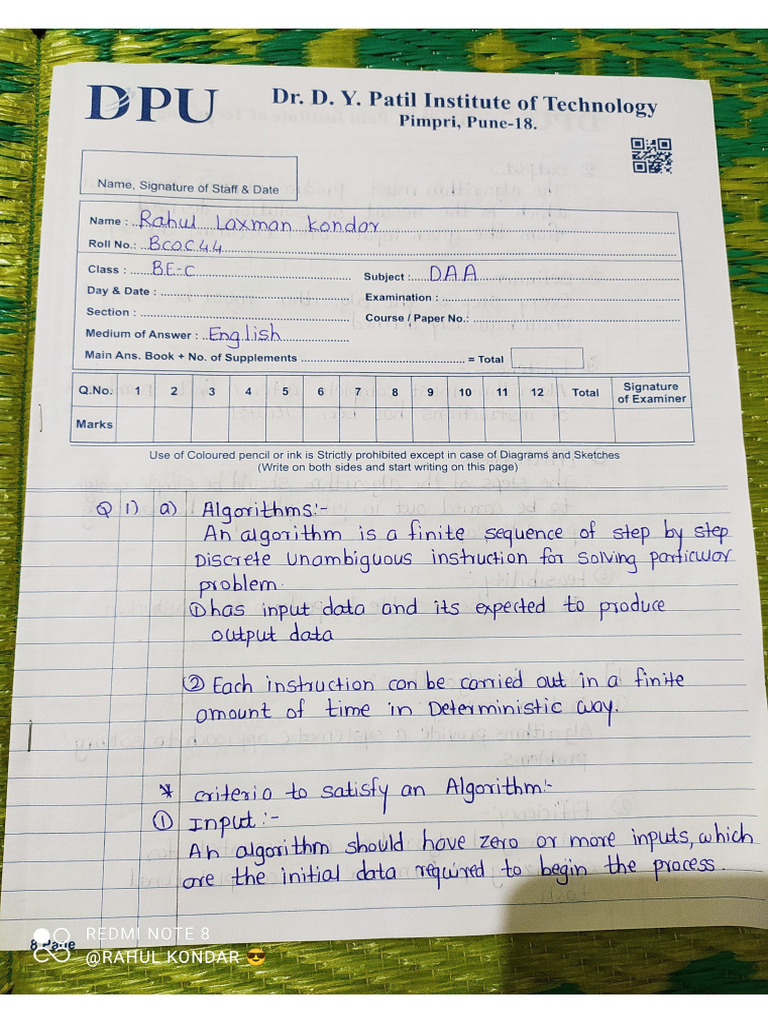 DPU
Dr. D. Y. Patil Institute of Technology
Pimpri, Pune-18.
Name, Signature of Staff & Date
Name : Rahul Laxman Kondar
Roll No.: BCOC44
Class : BE-C Subject : DAA
Day & Date : Examination :
Section : Course / Paper No.:
Medium of Answer : English
Main Ans. Book + No. of Supplements = Total
Q.No. 1 2 3 4 5 6 7 8 9 10 11 12 Total Signature of Examiner
Marks
Use of Coloured pencil or ink is Strictly prohibited except in case of Diagrams and Sketches
(Write on both sides and start writing on this page)
Q 1) a) Algorithms:-
An algorithm is a finite sequence of step by step
Discrete unambiguous instruction for solving particular
problem.
① has input data and its expected to produce
output data
② Each instruction can be carried out in a finite
amount of time in Deterministic way.
* criteria to satisfy an Algorithm:-
① Input :-
An algorithm should have zero or more inputs, which
are the initial data required to begin the process.
8 Page
REDMI NOTE 8
@RAHUL KONDAR 😎